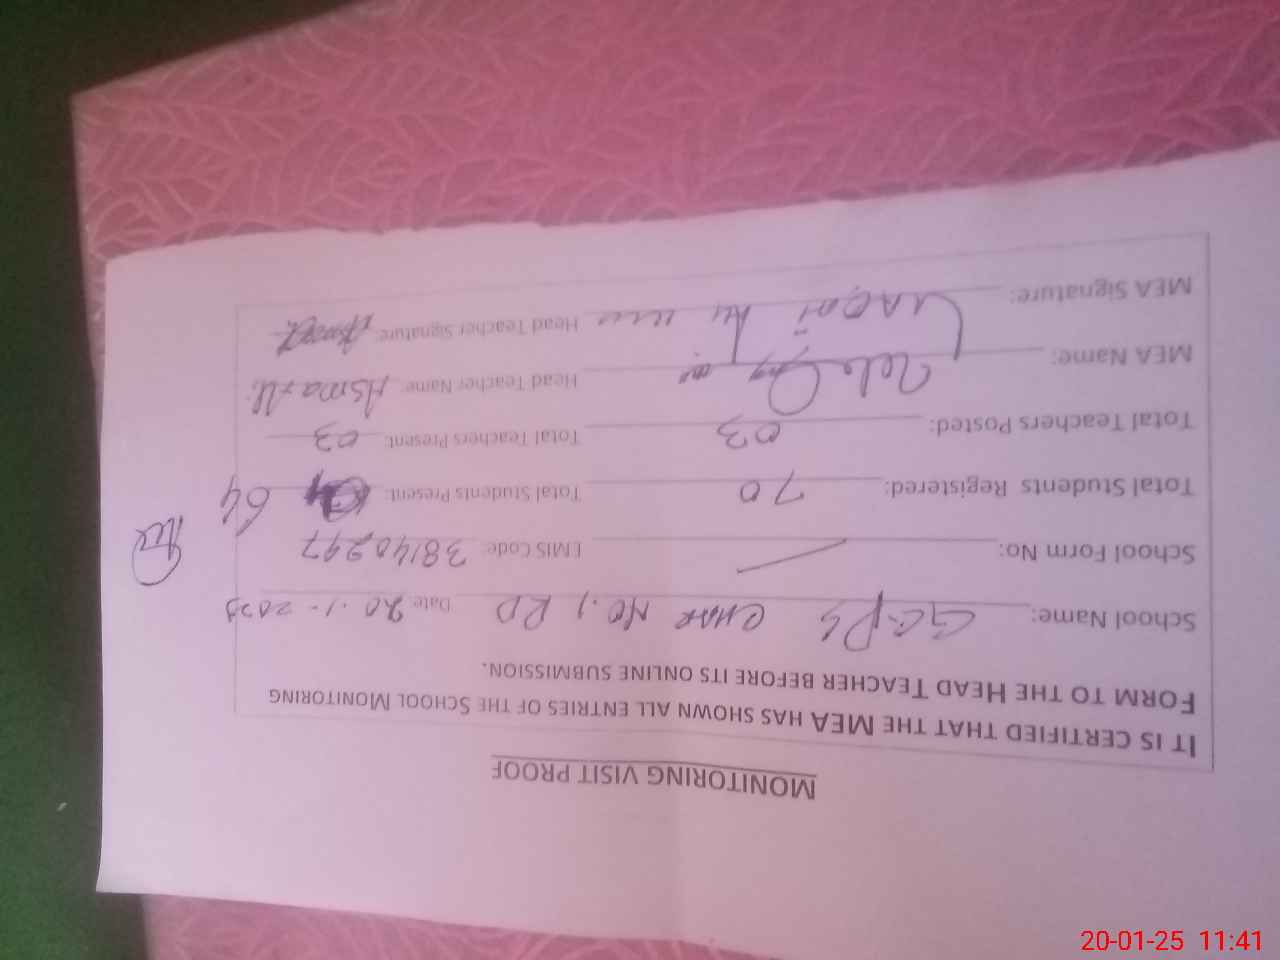 MONITORING VISIT PROOF
IT IS CERTIFIED THAT THE MEA HAS SHOWN ALL ENTRIES OF THE SCHOOL MONITORING
FORM TO THE HEAD TEACHER BEFORE ITS ONLINE SUBMISSION.
School Name: GGPS CHAK NO. 1 RD Date: 20-1-2025
School Form No: EMIS Code: 38140297
Total Students Registered: 70 Total Students Present: 64
Total Teachers Posted: 03 Total Teachers Present: 03
MEA Name: Head Teacher Name: Asma
MEA Signature: Head Teacher Signature:
20-01-25 11:41